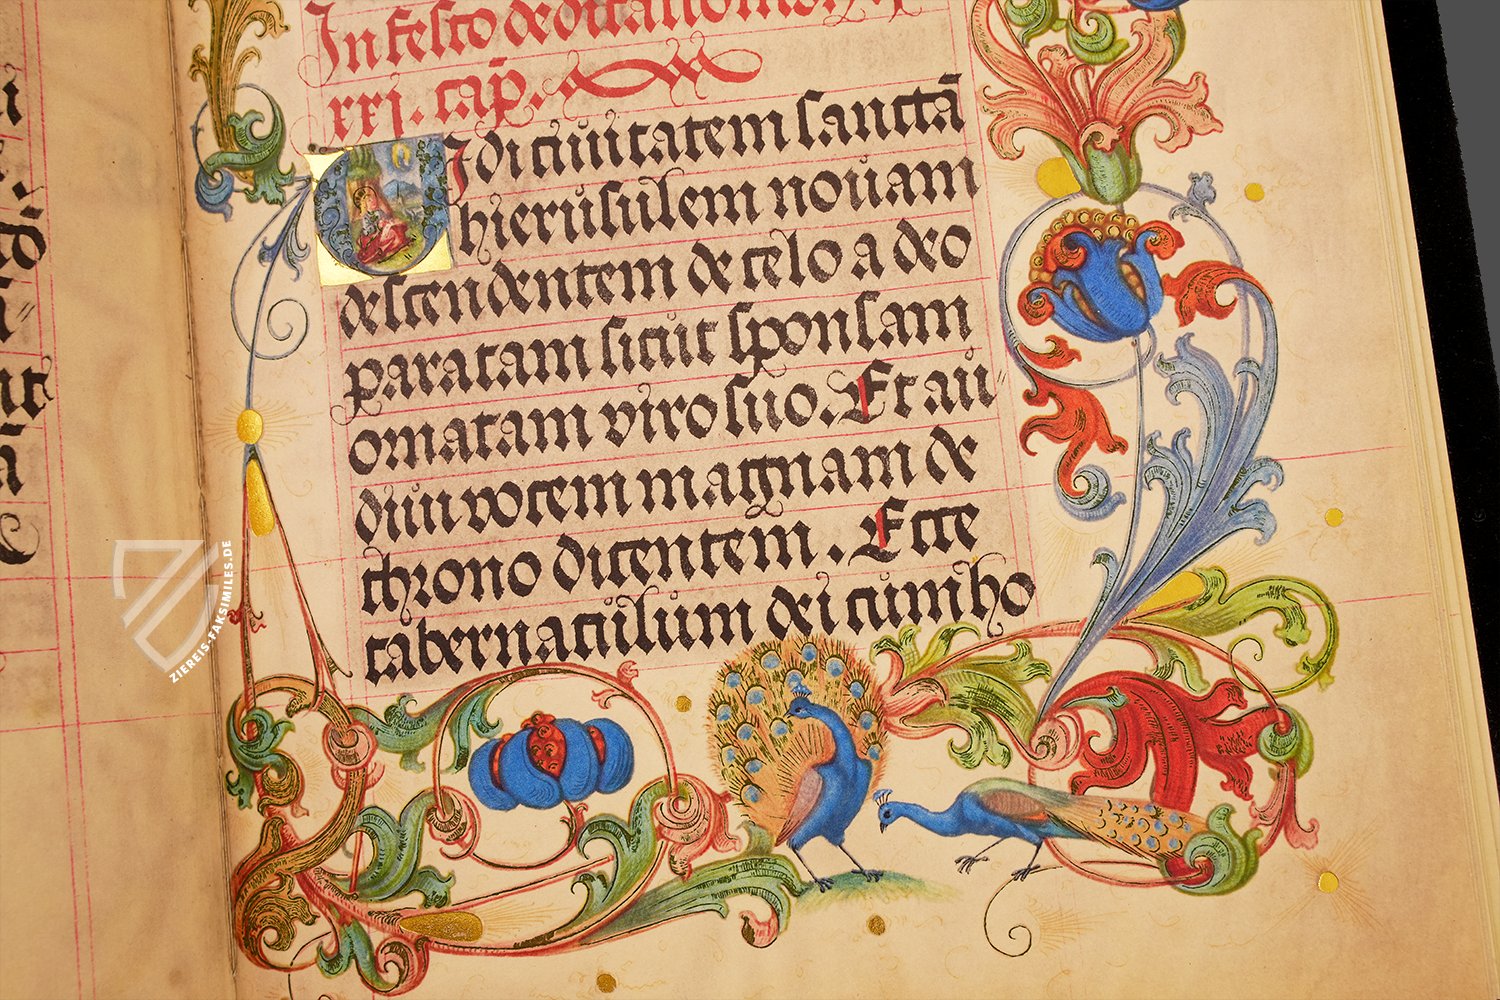 In festo dedicationis
xxj. cap̄.
Vidi ciuitatem sanctā
hierusulem nouam
descendentem de celo a deo
paratam sicut sponsam
ornatam viro suo. Et au
diui vocem magnam de
throno dicentem. Ecce
tabernaculum dei cum ho
ZIEREIS-FAKSIMILES.DE